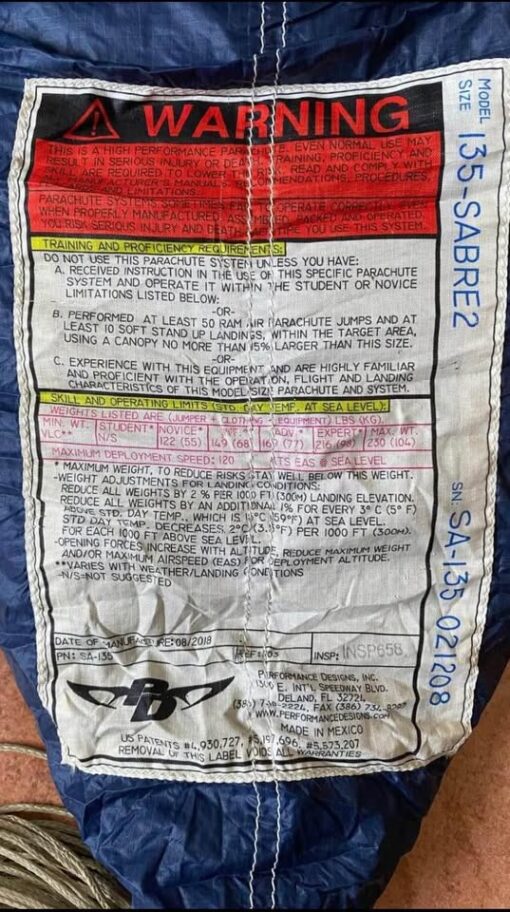 WARNING
THIS IS A HIGH PERFORMANCE PARACHUTE. EVEN NORMAL USE MAY
RESULT IN SERIOUS INJURY OR DEATH. TRAINING, PROFICIENCY AND
SKILL ARE REQUIRED TO LOWER THE RISK. READ AND COMPLY WITH
MANUFACTURER'S MANUALS, RECOMMENDATIONS, PROCEDURES,
AND LIMITATIONS
PARACHUTE SYSTEMS SOMETIMES FAIL TO OPERATE CORRECTLY EVEN
WHEN PROPERLY MANUFACTURED, ASSEMBLED, PACKED AND OPERATED.
YOU RISK SERIOUS INJURY AND DEATH TIME YOU USE THIS SYSTEM.
TRAINING AND PROFICIENCY REQUIREMENTS:
DO NOT USE THIS PARACHUTE SYSTEM UNLESS YOU HAVE:
A. RECEIVED INSTRUCTION IN THE USE OF THIS SPECIFIC PARACHUTE
SYSTEM AND OPERATE IT WITHIN THE STUDENT OR NOVICE
LIMITATIONS LISTED BELOW:
-OR-
B. PERFORMED AT LEAST 50 RAM AIR PARACHUTE JUMPS AND AT
LEAST 10 SOFT STAND UP LANDINGS, WITHIN THE TARGET AREA,
USING A CANOPY NO MORE THAN 15% LARGER THAN THIS SIZE.
-OR-
C. EXPERIENCE WITH THIS EQUIPMENT AND ARE HIGHLY FAMILIAR
AND PROFICIENT WITH THE OPERATION, FLIGHT AND LANDING
CHARACTERISTICS OF THIS MODEL/SIZE PARACHUTE AND SYSTEM.
SKILL AND OPERATING LIMITS (STD. DAY TEMP. AT SEA LEVEL):
WEIGHTS LISTED ARE (JUMPER + CLOTHING + EQUIPMENT) LBS (KG)
MIN. WT. STUDENT* NOVICE* ADV.* EXPERT* MAX. WT.
VLC** N/S 122 (55) 149 (68) 169 (77) 216 (98) 230 (104)
MAXIMUM DEPLOYMENT SPEED: 120 KTS EAS @ SEA LEVEL
* MAXIMUM WEIGHT, TO REDUCE RISKS STAY WELL BELOW THIS WEIGHT.
-WEIGHT ADJUSTMENTS FOR LANDING CONDITIONS:
REDUCE ALL WEIGHTS BY 2 % PER 1000 FT (300M) LANDING ELEVATION.
REDUCE ALL WEIGHTS BY AN ADDITIONAL 1% FOR EVERY 3° C (5° F)
ABOVE STD. DAY TEMP., WHICH IS 15°C (59°F) AT SEA LEVEL.
STD DAY TEMP. DECREASES 2°C (3.5°F) PER 1000 FT (300M).
FOR EACH 1000 FT ABOVE SEA LEVEL.
-OPENING FORCES INCREASE WITH ALTITUDE, REDUCE MAXIMUM WEIGHT
AND/OR MAXIMUM AIRSPEED (EAS) FOR DEPLOYMENT ALTITUDE.
**VARIES WITH WEATHER/LANDING CONDITIONS
-N/S=NOT SUGGESTED
DATE OF MANUFACTURE: 08/2018
PN: SA-135 REF: INSP: INSP656
PD
PERFORMANCE DESIGNS, INC.
1300 E. INT'L SPEEDWAY BLVD.
DELAND, FL 32724
FAX (386) 734-
WWW.PERFORMANCEDESIGNS.COM
MADE IN MEXICO
US PATENTS #4,930,727, #5,197,696, #5,573,207
REMOVAL OF THIS LABEL VOIDS ALL WARRANTIES
MODEL
SIZE 135-SABRE2
SN: SA-135 021208